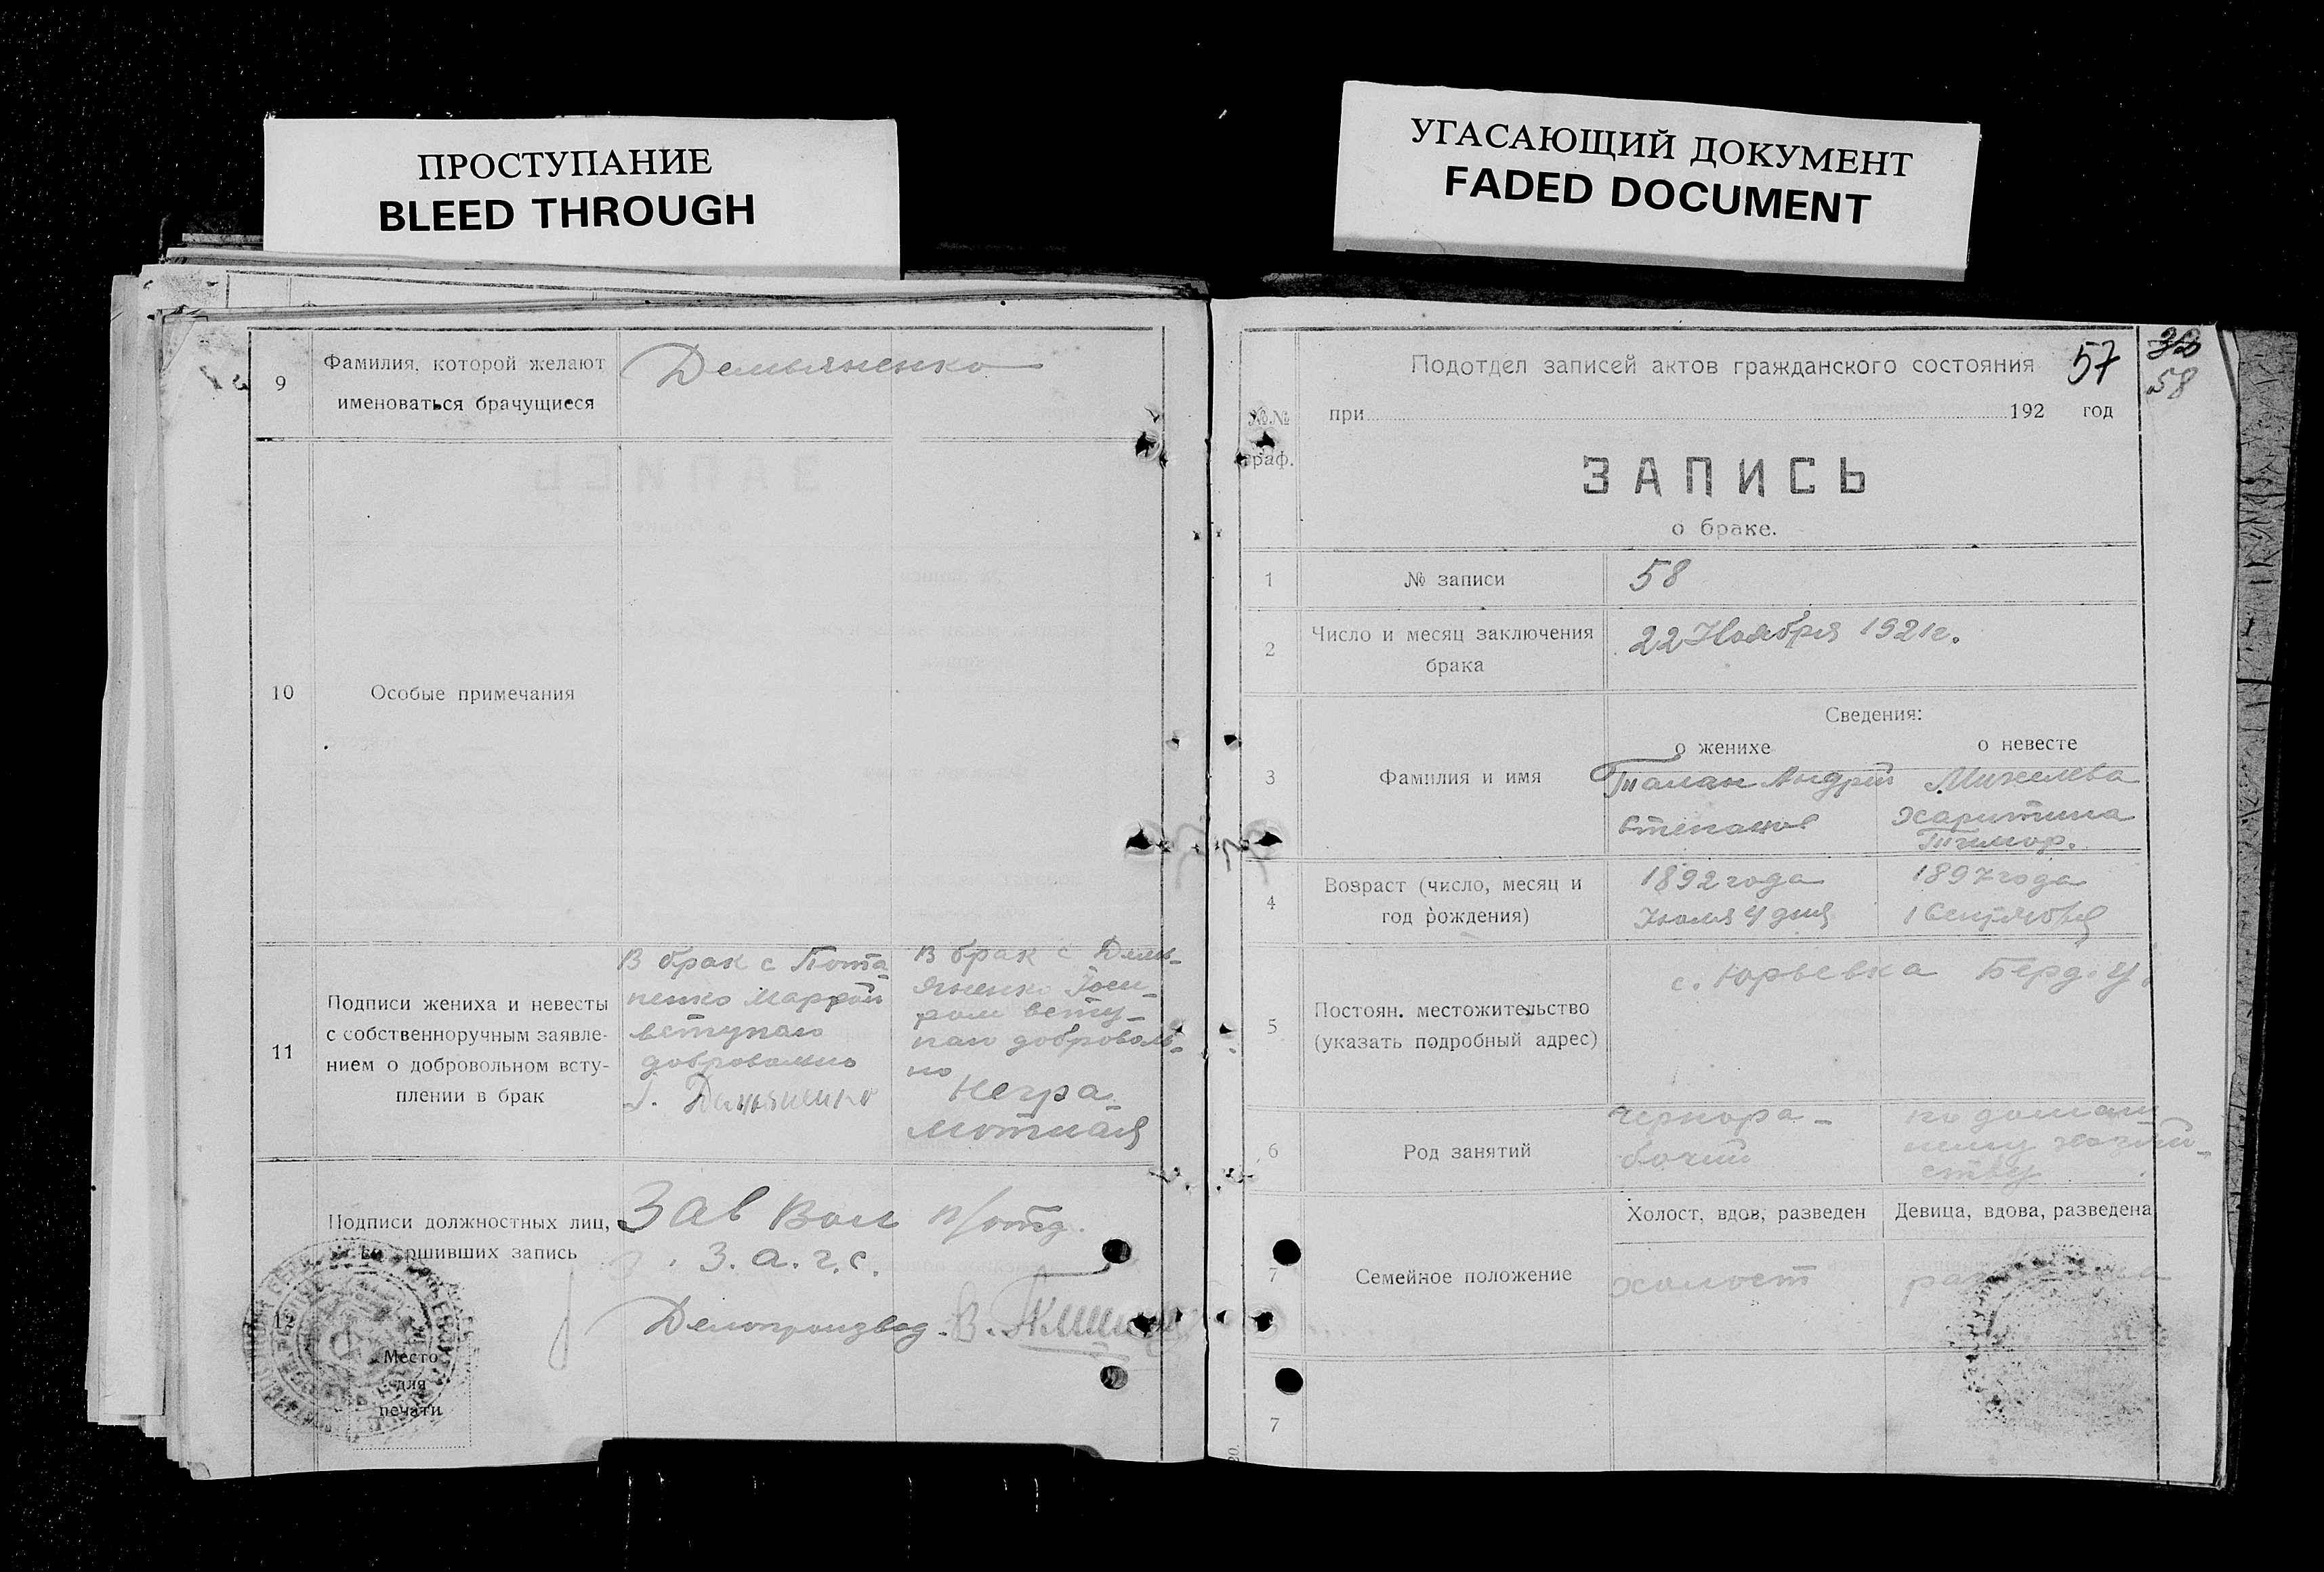 ПРОСТУПАНИЕ
BLEED THROUGH
УГАСАЮЩИЙ ДОКУМЕНТ
FADED DOCUMENT
9
Фамилия, которой желают
именоваться брачущиеся
Демьяненко
10
Особые примечания
11
Подписи жениха и невесты
с собственноручным заявле-
нием о добровольном всту-
плении в брак
В брак с Пота-
пенко Марфой
вступаю
добровольно
Демьяненко
В брак с Демь-
яненко
вступ-
паю доброволь-
но
Негра-
мотная
Подписи должностных лиц,
ршивших запись
Зав Вол п/отд.
З.а.г.с.
Делопроизвод. В.
Место
для
печати
Подотдел записей актов гражданского состояния
57
58
при 192 год
№№
граф.
ЗАПИСЬ
о браке.
1
№ записи
58
2
Число и месяц заключения
брака
22 Ноября 1921г.
Сведения:
о женихе
о невесте
3
Фамилия и имя
Талан Андрей
Степанов
Михелева
Харитина
Тимор.
4
Возраст (число, месяц и
год рождения)
1892 года
Июля 4 дня
1897 года
1 Сентября
5
Постоян. местожительство
(указать подробный адрес)
с. Юрьевка Берд. у.
6
Род занятий
чернора-
бочий
по домаш
нему хозяй-
ству
7
Семейное положение
Холост, вдов, разведен
Девица, вдова, разведена
холост
7